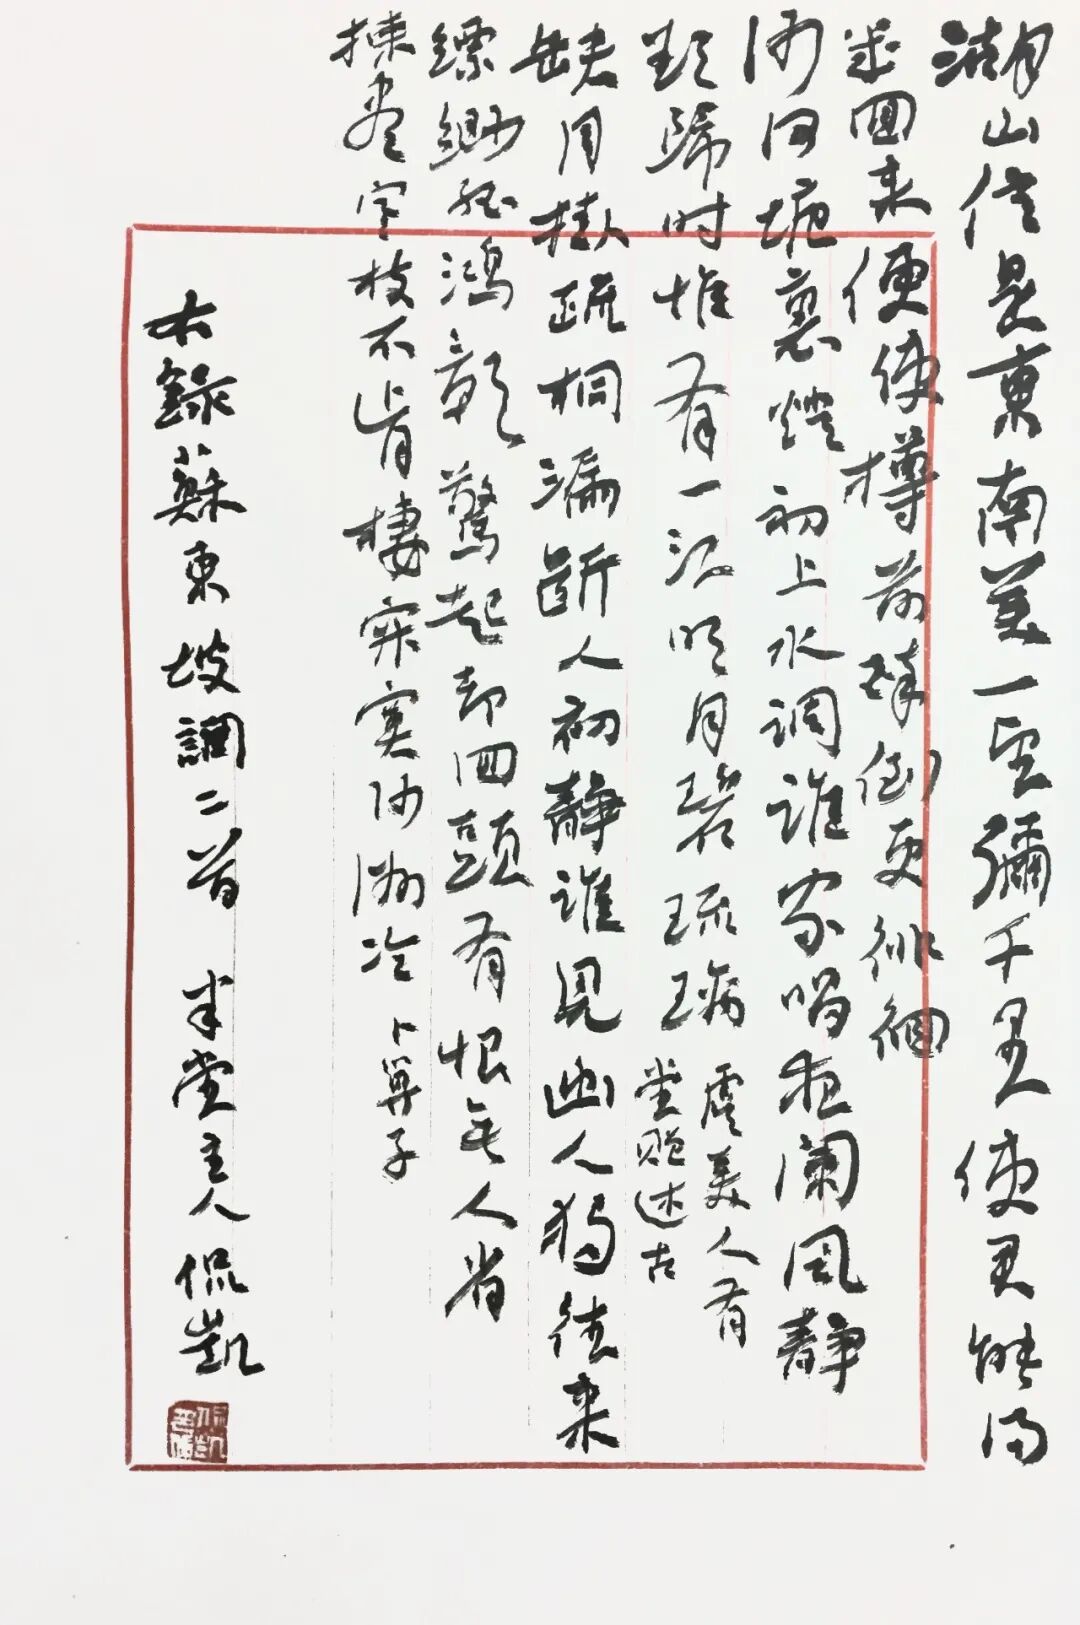 湖山信是東南美一望彌千里使君能得
幾回来便使樽前醉倒更徘徊
沙河塘裏燈初上水調誰家唱夜闌風静
欲歸时惟有一江明月碧琉璃 虞美人有
堂贈述古
缺月掛疏桐漏断人初静誰見幽人独往来
缥缈孤鴻影驚起却回頭有恨无人省
揀尽寒枝不肯棲寂寞沙洲冷 卜算子
右錄蘇東坡詞二首 半堂主人侃凱